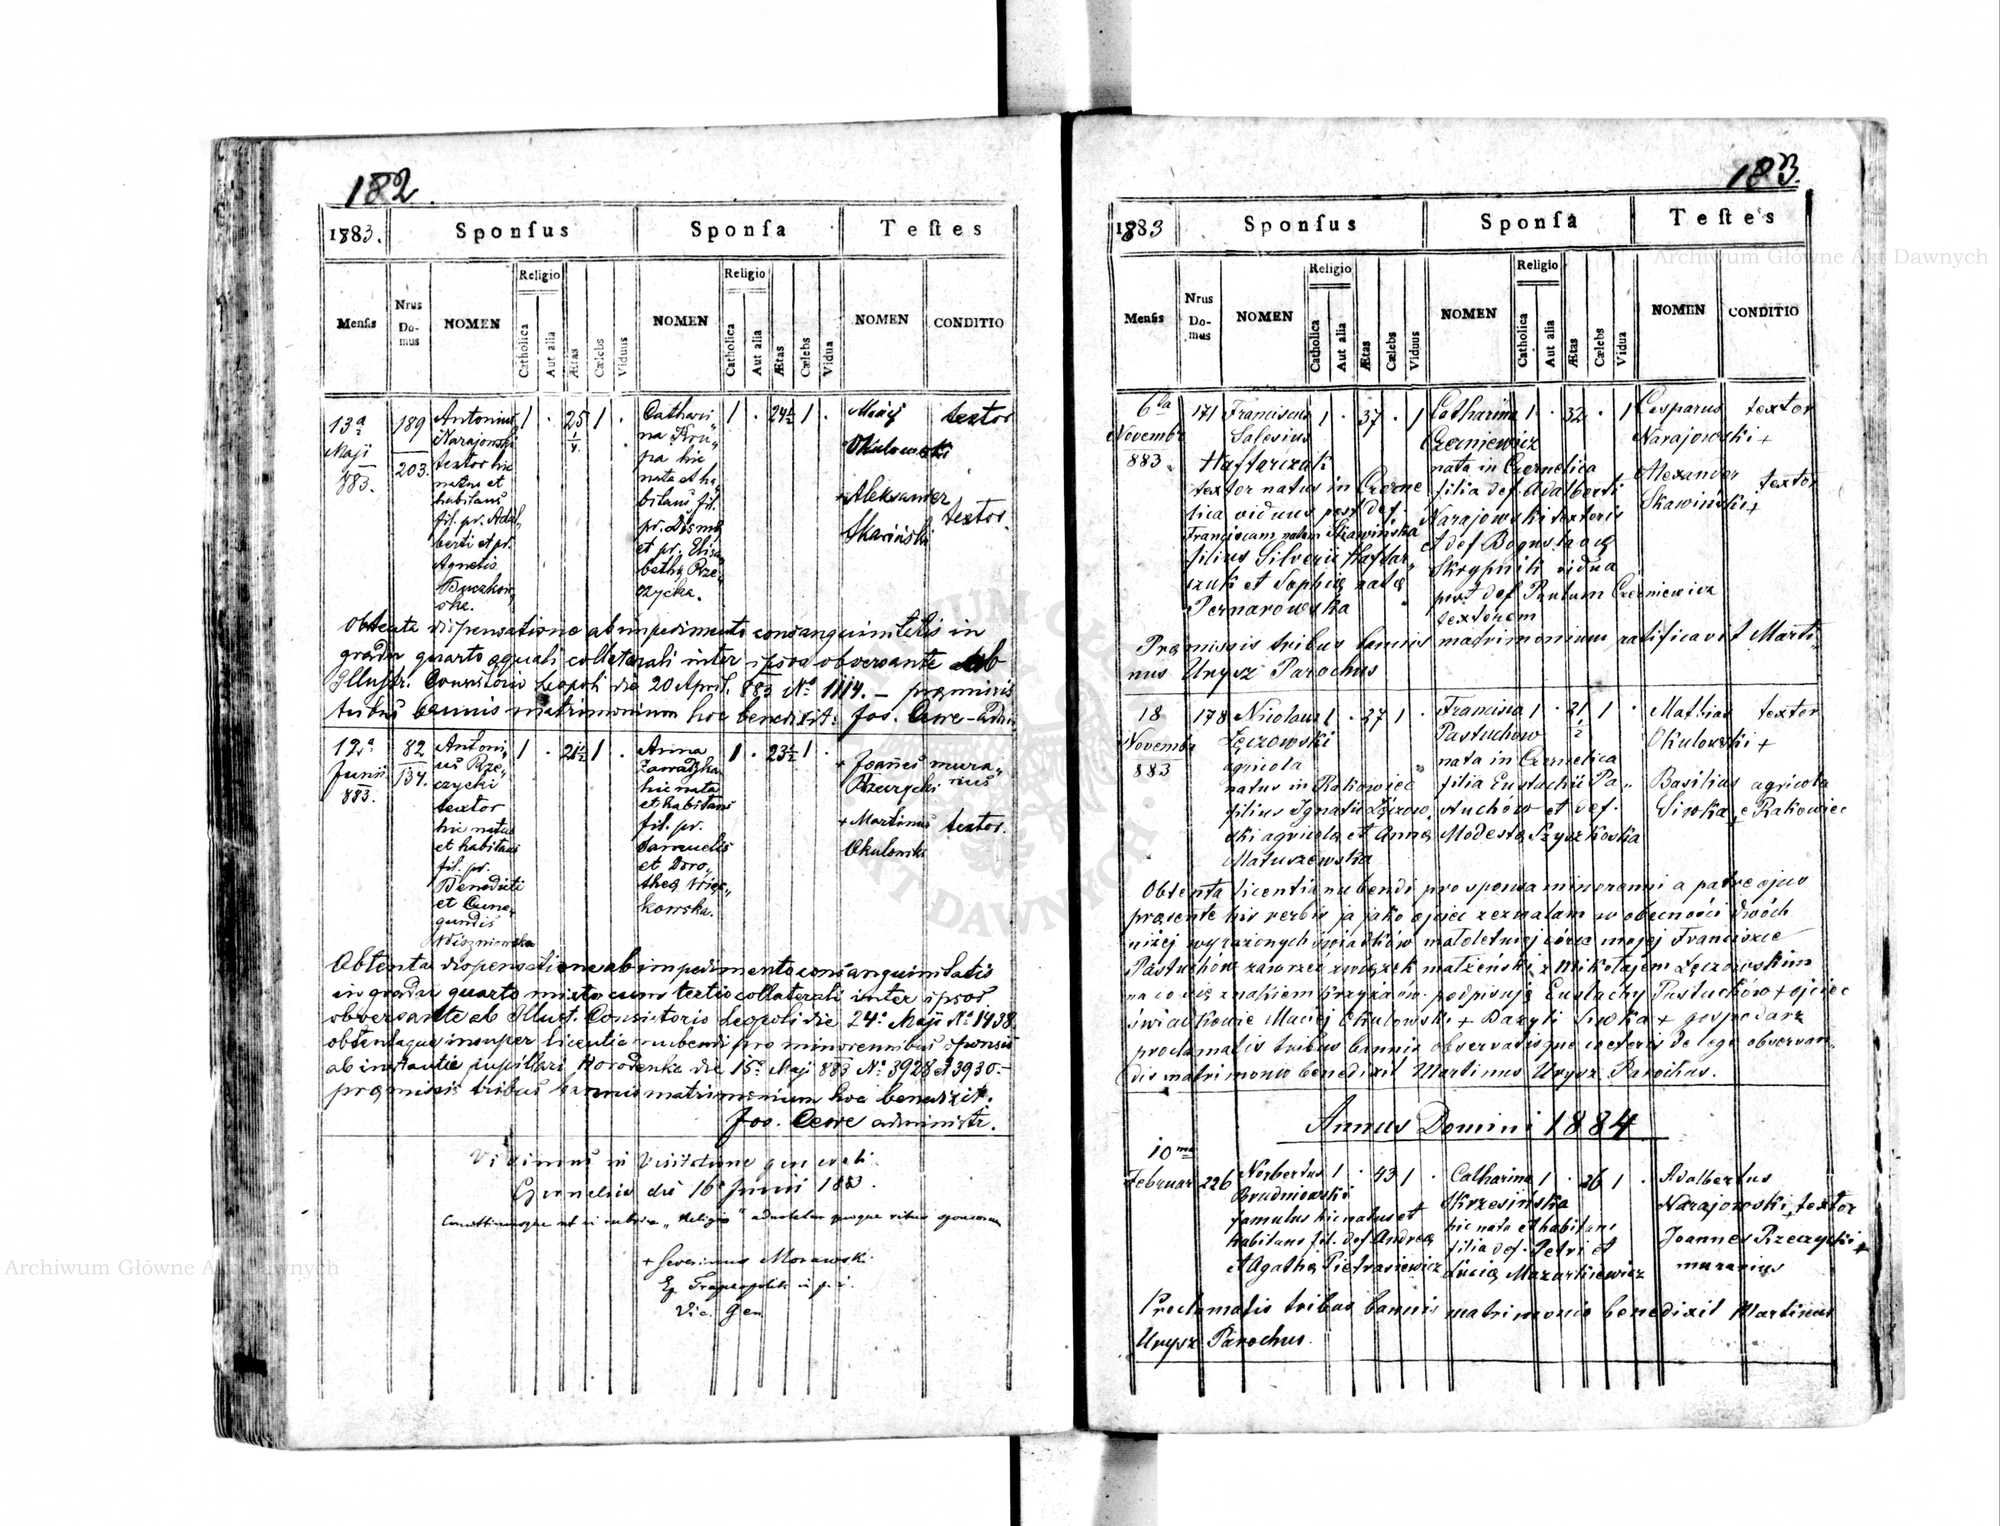 182.
1883.
Sponſus
Sponſa
Teſtes
Menſis
Nrus Domus
NOMEN
Religio
Catholica
Aut alia
Ætas
Cælebs
Viduus
NOMEN
Religio
Catholica
Aut alia
Ætas
Cælebs
Vidua
NOMEN
CONDITIO
13a
Maji
883.
189
203.
Antonius
Narajowski
textor hic
natus et
habitans
fil. pr. Adal„
berti et pr.
Agnetis
Buczkow„
ska.
1 · 25 1/4 1 ·
Cathari„
na Kru„
pa hic
nata et ha„
bitans, fil.
pr. Dismæ
et pr. Elisa„
bethę Rze„
czycka.
1 · 24½ 1 ·
Maciej
Okulowski
textor
+ Aleksander
Skawiński
textor.
Obtenta dispensatione ab impedimento consanguinitatis in
gradu quarto æquali collaterali inter ipsos obversante ab
Illustr. Consistorio Leopoli die 20 April. 883 No 1114. – præmissis
tribus bannis matrimonium hoc benedixit: Jos.
12a
Junii
883.
82
134.
Antoni„
us Rze„
czycki
textor
hic natus
et habitans
fil. pr.
Benedicti
et Cune„
gundis
Wiszniowska
1 · 21½ 1 ·
Anna
Zawadzka
hic nata
et habitans
fil. pr.
Samuelis
et Doro„
theę
kowska.
1 · 23½ 1 ·
+ Joanes
Rzeczycki
mura„
rius
+ Martinus
Okulowski
textor.
Obtenta dispensatione ab impedimento consanguinitatis
in gradu quarto mixto cum tertio collaterali inter ipsos
obversante ab Illust. Consistorio Leopoli die 24a Maji No 1438
obtentaque insuper licentia nubendi pro minorennibus sponsis
ab instantia pupillari Horodenka die 15a Maji 883 No 3928 et 3930.–
præmissis tribus bannis matrimonium hoc benedixit.
Jos. administr.
Vidimus in Visitatione generali
die 16 Junii 1883.
+ Severinus Morawski
Vic. Gen
183.
1883
Sponſus
Sponſa
Teſtes
Menſis
Nrus Domus
NOMEN
Religio
Catholica
Aut alia
Ætas
Cælebs
Viduus
NOMEN
Religio
Catholica
Aut alia
Ætas
Cælebs
Vidua
NOMEN
CONDITIO
6ta
Novembr
883.
171
Franciscus
Salesius
Haftarczuk
textor natus in Czerne
lica viduus post def.
Franciscam natam Skawińska
filius Silverii Haftar„
czuk et Sophię natę
Pernarowska
1 · 37 · 1
Catharina
Czerniewicz
nata in Czernelica
filia def. Adalberti
Narajowski textoris
et def Bogusława
Skrypnik vidua
post def Paulum Czerniewicz
textorem
1 · 32 · 1
Casparus
Narajowski +
textor
Alexander
Skawiński +
textor
Præmissis tribus bannis matrimonium ratificavit Marti„
nus Urysz Parochus
18
Novembr
883
178
Nicolaus
Łęczowski
agricola
natus in Rakowiec
filius Ignatii Łęczow„
ski agricolę et Annę
Matuszewska
1 · 27 1 ·
Francisca
Pastuchów
nata in Czernelica
filia Eustachii Pa„
stuchów et def.
Modestę Szyszkoska
1 · 21½ 1 ·
Mathias
Okulowski +
textor
Basilius
Siwka
agricola
e Rakowiec
Obtenta licentia nubendi pro sponsa minorenni a patre ejus
præsente his verbis ja jako ojciec zezwalam w obecności dwóch
niżej wyrażonych świadków małoletniej córce mojej Franciszce
Pastuchów zawrzeć związek małżeński z Mikołajem Łęczowskim
na co się znakiem krzyża św. podpisuję Eustachy Pastuchów + ojciec
świadkowie Maciej Okulowski + Bazyli Siwka + gospodarz
proclamatis tribus bannis observatisque ceteris de lege observan„
dis matrimonio benedixit Martinus Urysz Parochus.
Annus Domini 1884
10ma
Februar
226
Norbertus
Brudniowski
famulus hic natus et
habitans fil. def Andreę
et Agathę Pietrasiewicz
1 · 43 1 ·
Catharina
Skrzesińska
hic nata et habitans
filia def. Petri et
Lucię Mazurkiewicz
1 · 26 1 ·
Adalbertus
Narajowski + textor
Joannes Rzeczycki +
murarius
Proclamatis tribus bannis matrimonio benedixit Martinus
Urysz Parochus.
Archiwum Główne Akt Dawnych
Archiwum Główne Akt Dawnych